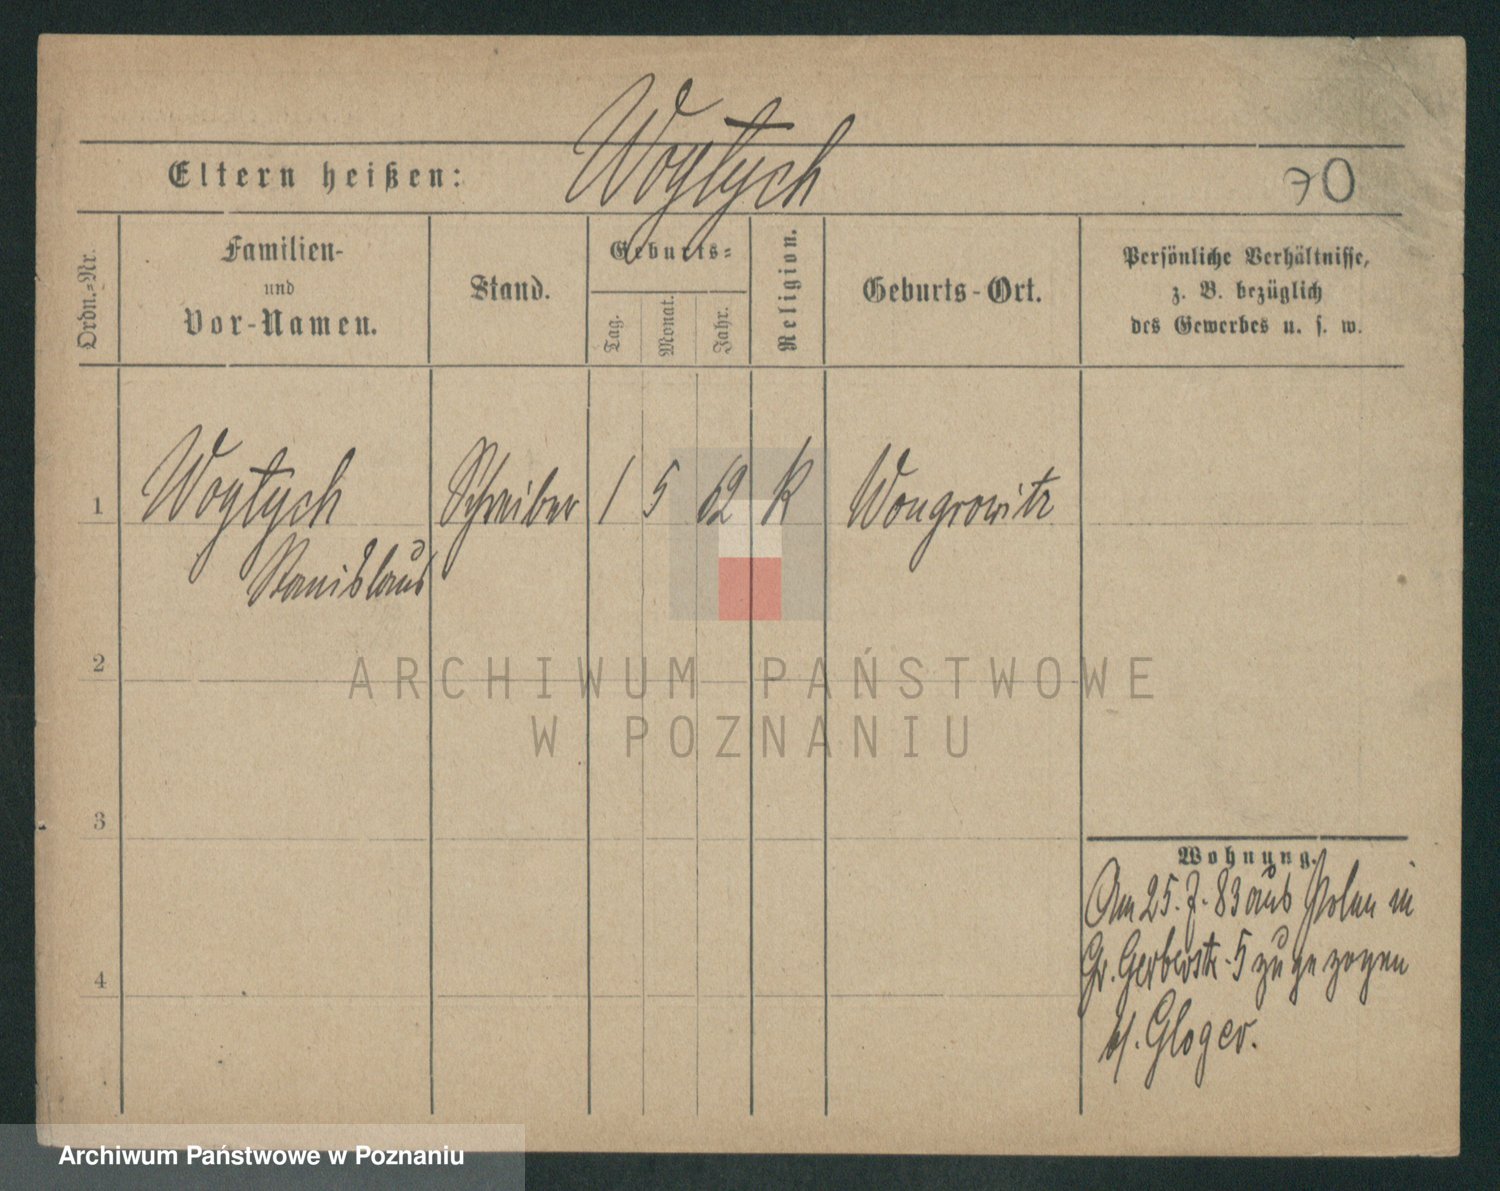 Wogtych
Eltern heißen:
70
Ordn.-Nr.
Familien-
und
Vor-Namen.
Stand.
Geburts-
Tag.
Monat.
Jahr.
Religion.
Geburts-Ort.
Persönliche Verhältnisse,
z. B. bezüglich
des Gewerbes u. s. w.
1 Wogtych Schreiber 1 5 62 K Wongrowitz
Stanislaus
2
ARCHIWUM PAŃSTWOWE
W POZNANIU
3
Wohnung.
Am 25. 7. 83 aus Polen in
Gr. Gerberstr. 5 zugezogen
4
b/. Gloger.
Archiwum Państwowe w Poznaniu